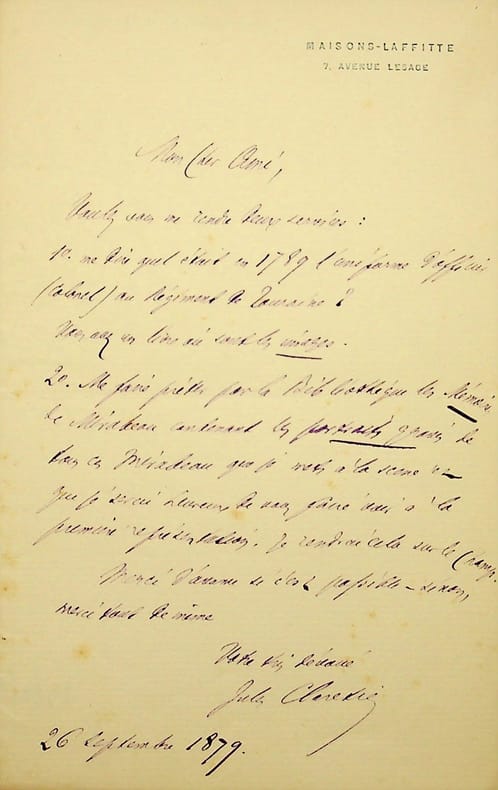 MAISONS-LAFFITTE
7, AVENUE LESAGE
Mon cher Aimé,
Voulez vous me rendre deux services :
1o. me dire quel était en 1789 l'uniforme d'officier
(Colonel) au Régiment de Touraine ?
Vous avez un livre où sont les images.
2o. Me faire prêter par la Bibliothèque les Mémoires
de Mirabeau contenant les portraits gravés de
tous ces Mirabeau que je mets à la scène et
que je serai heureux de vous faire voir à la
première représentation. Je rendrai cela sur le champ.
Merci d'avance si c'est possible – sinon,
merci tout de même
Votre bien dévoué
Jules Claretie
26 Septembre 1879.